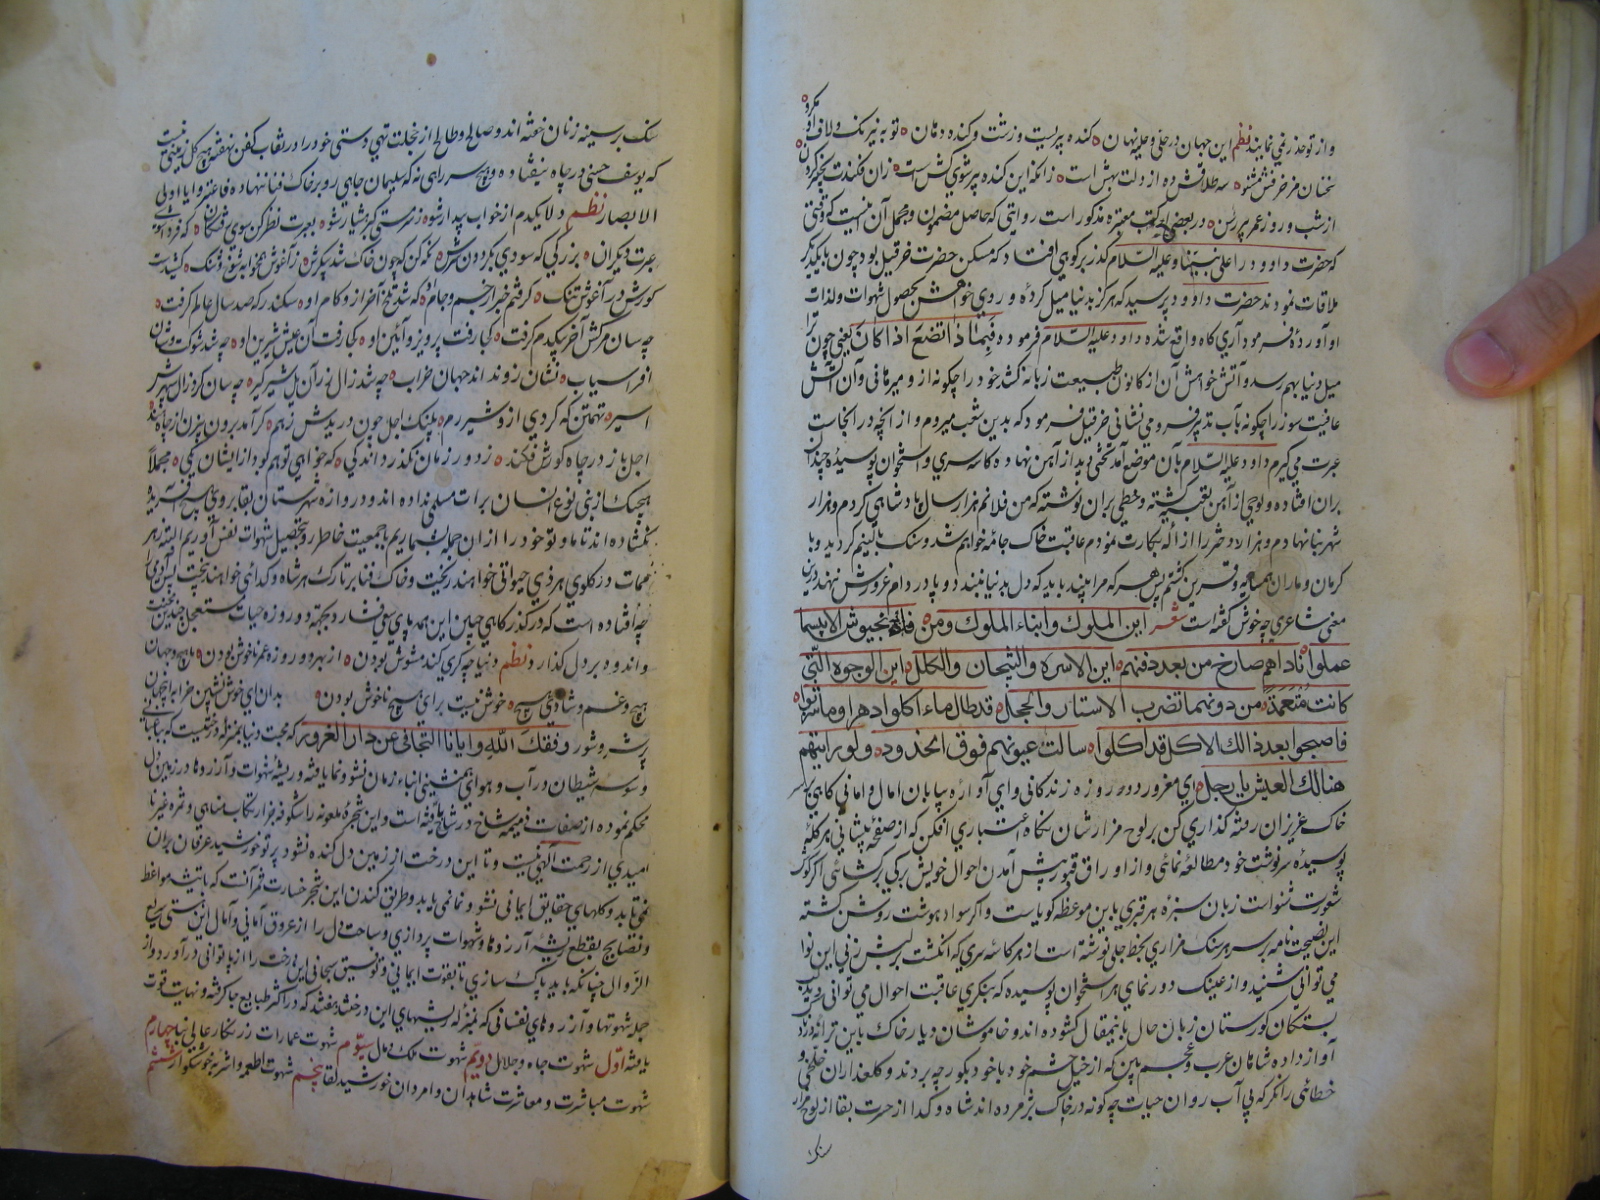 مکرو
و از تو حذر نمی نمایند نظم این جهان در حلی و حلیه نهان ه کنده پیریست و زشت و کنده دهان ه تو به نیرنک و لاف او
سخنان مزخرفش مشنو ه سه طلاقش ده از دلت بهش است ه زانکه این کنده پیر شوی کش است ه زان فکندت بچه کردن
از شب و روز عمر پر رسن ه در بعضی کتب معتبره مذکور است روایتی که حاصل مضمون و مجمل آن اینست که وقتی
که حضرت داوود را علی نبینا و علیه السلام کذر بر کوهی افتاد که مسکن حضرت خرقیل بود چون با یکدیکر
ملاقات نمودند حضرت داوود پرسید که هرکز بدنیا میل کرده و روی خواهش بحصول شهوات و لذات
او آورده فرمود آری کاه واقع شده داوود علیه السلام فرموده فبماذا تضع اذا کان یعنی چون ترا
میل دنیا بهم رسد و آتش خواهش آن از کانون طبیعت زبانه کشد خود را چکونه از و میرهانی و آن آتش
عافیت سوز را چکونه بآب تدبیر فرو می نشانی خرقیل فرمود که بدین شعب میروم و از آنچه در آنجاست
عبرت می کیرم داود علیه السلام بآن موضع آمد تختی دید از آهن نهاده کاسه سری و استخوان پوسیده چندان
بران افتاده و لوحی از آهن تعبیه کشته و خطی بران نوشته که من فلانم هزار سال پادشاهی کردم و هزار
شهر بنا نهادم و هزار دختر را ازاله بکارت نمودم عاقبت خاک جامه خوابم شد و سنک بالینم کردید و با
کرمان و ماران همسایه و قرین کشتم پس هر که مرا بیند باید که دل بدنیا نبندد و پا در دام غرورش ننهد درین
معنی شاعری چه خوش کفته است شعر این الملوک و ابناء الملوک و من ه قاد الجیوش الا بئسما
عملوا ه ناداهم صارخ من بعد دفنهم ه این الاسره والتیجان والکلل ه این الوجوه التی
کانت منعمة ه من دونها تضرب الاستار والحجل ه قد طال ماء اکلوا دهرا وما شربوا ه
فاصبحوا بعد ذالک الاکل قد اکلوا ه سالت عیونهم فوق الخدود ه ولو رایتهم
هنالک العیش یا رجل ه ای مغرور دو روزه زندکانی و ای آواره بیابان آمال و امانی کاهی بر سر
خاک عزیزان رفته کذاری کن بر لوح مزارشان نکاه اعتباری افکن که از صفحه پیشانی هر کله
پوسیده سرنوشت خود مطالعه نمائی و از اوراق قبور پیش آمدن احوال خویش برکی برکشائی اکر کوش
شعورت شنواست زبان سبزه هر قبری باین موعظه کویاست و اکر سواد هوشت روشن کشته
این نصیحت نامه بر سر هر سنک مزاری بخط جلی نوشته است از هر کاسه سری که انکشت لبش زنی این نوا
می توانی شنید و از عینک دور نمای هر استخوان پوسیده که بنکری عاقبت احوال می توانی دید لب
بستکان کورستان زبان حال باینمقال کشوده اند و خاموشان دیار خاک باین ترانه در داد
آواز داده شاهان عرب و عجم بین که از خیل حشم خود با خود بکور چه بردند و کلعذاران خلخی و
خطائی را نکر که بی آب روان حیات چه کونه در خاک پژمرده اند شاه و کدا از حسرت بقا از لوح مزار
سنک
سنک بر سینه زنان خفته اند و صالح و طالح از خجلت تهی دستی خود را در نقاب کفن نهفته هیچ کل زمینی نیست
که یوسف حسنی در چاه نیفتاده و هیچ سر راهی نه که سلیمان جاهی رو بر خاک فنا ننهاده فاعتبروا یا اولی
الابصار نظم دلا یکدم از خواب بیدار شو ه ز مستی کبر هشیار شو ه بعبرت نظر کن سوی رفتکان ه که فردا شوی
عبرت دیکران ه بزرکی که سودی بکردون سرش ه نکه کن که چون خاک شد پیکرش ه ز آغوش همخوابه شوخ و شنک ه کشیدست
کورش در آغوش تنک ه کرفتم خبر از جم و جام او ه که شد تلخ آخر ازو کام او ه سکندر که صد سال عالم کرفت ه
چه سان مرکش آخر بیکدم کرفت ه کجا رفت پرویز و آئین او ه کجا رفت آن عیش شیرین او ه چه شد شوکت و شان
افراسیاب ه نشان زو نداند جهان خراب ه چه شد زال زر آن یل شیر کیر ه چه سان کرد زال سپهرش
اسیر ه تهمتن که کردی ازو شیر رم ه پلنک اجل چون دریدش ز هم ه کر آمد برون بیژن از چاه بند
اجل باز در چاه کورش فکند ه ز دور زمان نکذرد اندکی ه که خواهی تو هم بود از ایشان یکی ه مجملا
هیچیک از بنی نوع انسان برات مسلمی نداده اند و دروازه شهرستان بقا بروی هیچ آفریده
نکشاده اند تا ما و تو خود را از ان جمله شماریم با جمعیت خاطر رو بتحصیل شهوات نفس آوریم البته زهر
ممات در کلوی هر ذی حیوانی خواهند ریخت و خاک فنا بر تارک هر شاه و کدائی خواهند بیخت پس آدمی را
چه افتاده است که در کذرکاهی چنین این همه پای سعی فشارد و بجهة دو روزه حیات مستعجل چندین محنت
و اندوه بر دل کذارد نظم دنیا چه کری کند مشوش بودن ه از بهر دو روزه عمر ناخوش بودن ه با هیچ جهان
هیچ و غم و شادی هیچ ه خوش نیست برای هیچ ناخوش بودن ه بدان ای خوش نشین خرابه اینجهان
پر شر و شور وفقک الله وایانا التجافی عن دار الغرور که محبت دنیا بمنزله درختیست که بآبیاری
وسوسه شیطان در آب و هوای همنشینی ابناء زمان نشو و نما یافته و ریشه شهوات و آرزوها در زمین دل
محکم نموده از صفات ذمیمه شاخ در شاخ بافته است و این شجره ملعونه را شکوفه بجز ارتکاب مناهی و ثمره غیر نا
امیدی از رحمت آلهی نیست و تا این درخت از زمین دل کنده نشود پرتو خورشید عرفان بران
نمی تابد و کلهای حقایق ایمانی نشو و نما نمی یابد و طریق کندن این شجر خسارت ثمر آنست که با تیشه مواعظ
و نصایح بقطع ریشه آرزوها و شهوات پردازی و ساحت دل را از عروق آمانی و آمال این هستی سریع
الزوال چنانکه باید پاک سازی تا بقوت ایمانی و توفیق سبحانی این درخت را از پا توانی در آورد و از
جمله شهوتها و آرزوهای نفسانی که بمنزله ریشهای این درختند هفتند که در اکثر طبایع جا کرفته و نهایت قوت
یافته اول شهوت جاه و جلال دویم شهوت ملک و مال سیوم شهوت عمارات زرنکار عالی بنا چهارم
شهوت مباشرت و معاشرت شاهدان و امردان خورشید لقا پنجم شهوت اطعمه و اشربه خوشکوار ششم